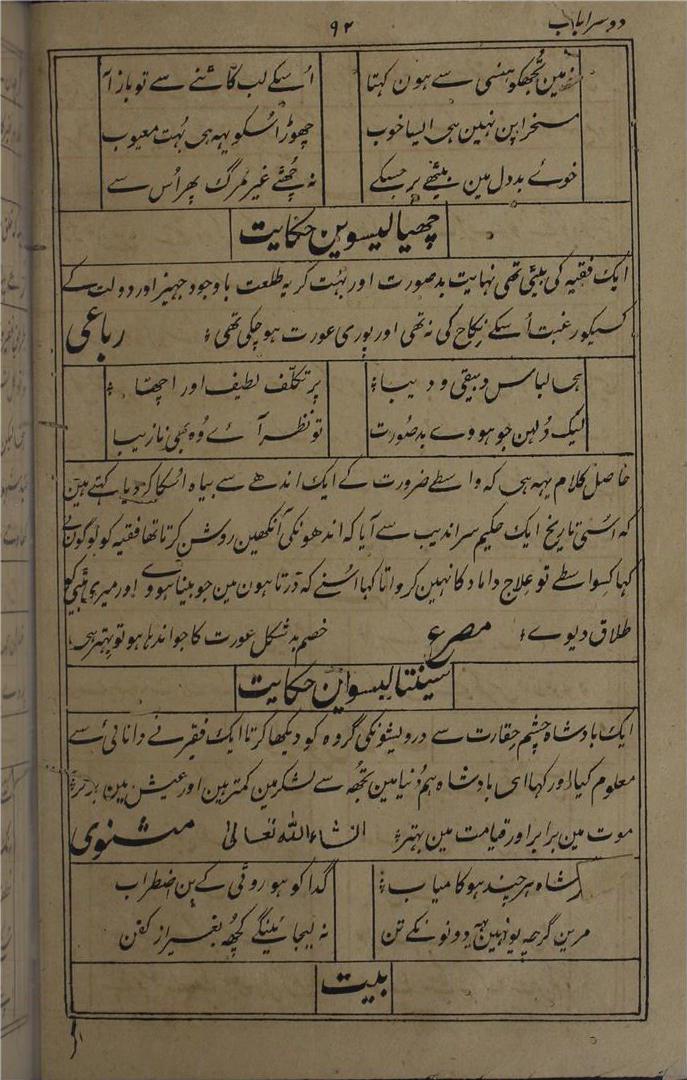 دوسرا باب
۹۲
مین تجھکو ہنسی سے ہون کہتا اُسکے لب کاٹنے سے تو باز آ
مسخراپن نہین ہی ایسا خوب چھوڑ اُسکو یہہ ہی بہت معیوب
خوئے بد دل مین بیٹھے پر جسکے نہ چُھٹے غیر مرگ پھر اُس سے
چھیالیسوین حکایت
ایک فقیہ کی بیٹی تھی نہایت بدصورت اور بہت کریہ طلعت باوجود جہیز اور دولت کے
کسیکو رغبت اُسکے نکاح کی نہ تھی اور پوری عورت ہو چکی تھی ؛ رباعی
ہی لباس دبیقی و دیبا ؛ پر تکلّف لطیف اور اچھا ؛
لیک دُلہن جو ہووے بدصورت تو نظر آئے وُہ بھی نازیبا
حاصل کلام یہہ ہی کہ واسطے ضرورت کے ایک اندھے سے بیاہ اُسکا کر دیا کہتے ہین
کہ اُسی تاریخ ایک حکیم سراندیب سے آیا کہ اندھونکی آنکھین روشن کرتا تھا فقیہ کو لوگون نے
کہا کسواسطے تو علاج داماد کا نہین کرواتا کہا اُسنے کہ ڈرتا ہون مین جو بینا ہووے اور میری بیٹی کو
طلاق دیوے ؛ مصرع خصم بدشکل عورت کا جو اندھا ہو تو بہتر ہی
سینتالیسوین حکایت
ایک بادشاہ چشم حقارت سے درویشونکی گروہ کو دیکھا کرتا ایک فقیر نے دانائی سے
معلوم کیا اور کہا ای بادشاہ ہم دُنیا مین تجھ سے لشکر مین کمتر ہین اور عیش مین
موت مین برابر اور قیامت مین بہتر ؛ انشاء اللہ تعالیٰ مثنوی
شاہ ہر چند ہو کامیاب ؛ گدا کو ہو روٹی کے بن اضطراب
مرین گرچہ یونہین یہ دونونکے تن نہ لیجائینگے کچھ بغیر از کفن
بیت